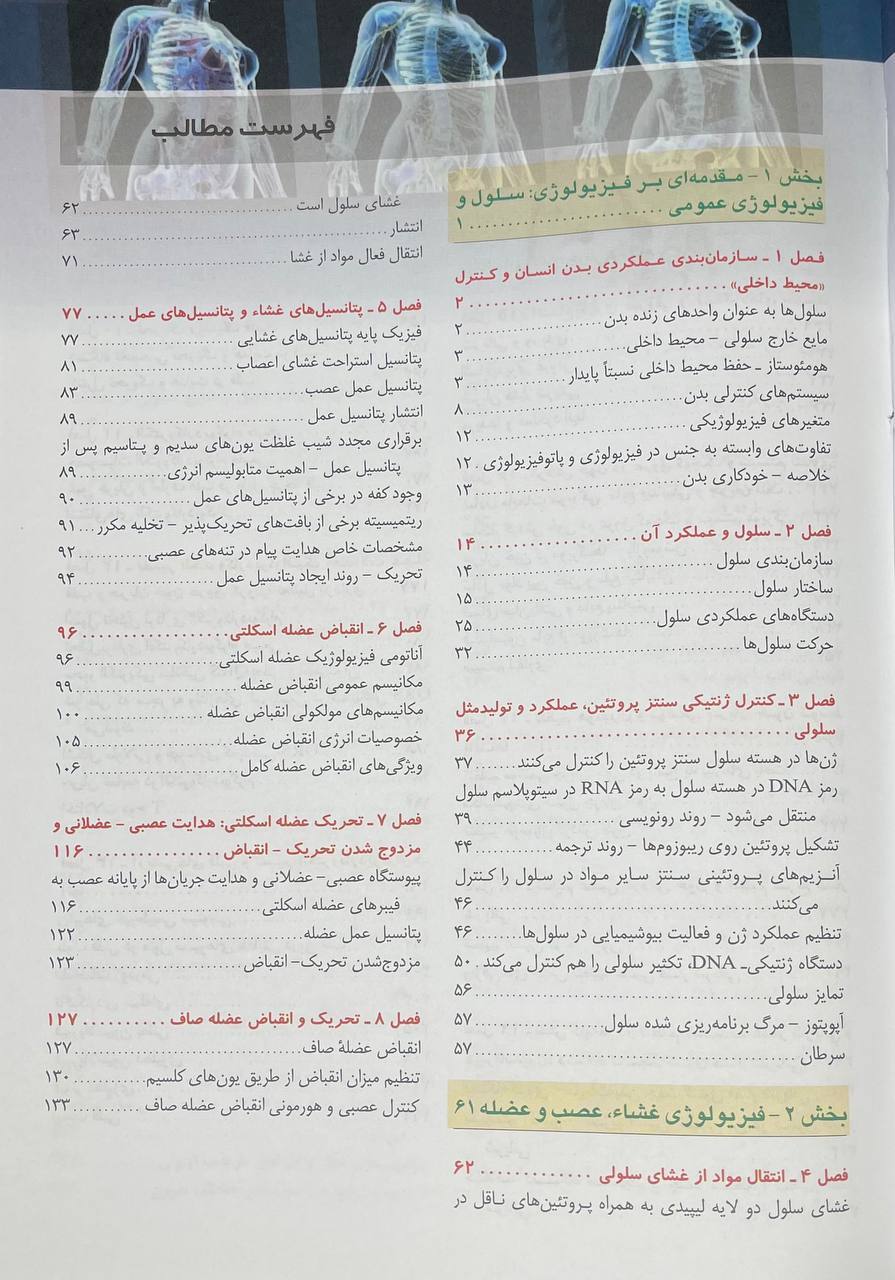 فهرست مطالب
بخش ۱ – مقدمه‌ای بر فیزیولوژی: سلول و
فیزیولوژی عمومی ........................ ۱
فصل ۱ ـ سازمان‌بندی عملکردی بدن انسان و کنترل
«محیط داخلی» ........................ ۲
سلول‌ها به عنوان واحدهای زنده بدن ........................ ۲
مایع خارج سلولی – محیط داخلی ........................ ۳
هومئوستاز ـ حفظ محیط داخلی نسبتاً پایدار ........................ ۳
سیستم‌های کنترلی بدن ........................ ۸
متغیرهای فیزیولوژیکی ........................ ۱۲
تفاوت‌های وابسته به جنس در فیزیولوژی و پاتوفیزیولوژی . ۱۲
خلاصه – خودکاری بدن ........................ ۱۳
فصل ۲ ـ سلول و عملکرد آن ........................ ۱۴
سازمان‌بندی سلول ........................ ۱۴
ساختار سلول ........................ ۱۵
دستگاه‌های عملکردی سلول ........................ ۲۵
حرکت سلول‌ها ........................ ۳۲
فصل ۳ ـ کنترل ژنتیکی سنتز پروتئین، عملکرد و تولیدمثل
سلولی ........................ ۳۶
ژن‌ها در هسته سلول سنتز پروتئین را کنترل می‌کنند ....... ۳۷
رمز DNA در هسته سلول به رمز RNA در سیتوپلاسم سلول
منتقل می‌شود – روند رونویسی ........................ ۳۹
تشکیل پروتئین روی ریبوزوم‌ها – روند ترجمه ............ ۴۴
آنزیم‌های پروتئینی سنتز سایر مواد در سلول را کنترل
می‌کنند ........................ ۴۶
تنظیم عملکرد ژن و فعالیت بیوشیمیایی در سلول‌ها ........ ۴۶
دستگاه ژنتیکی‌ـ DNA، تکثیر سلولی را هم کنترل می‌کند . ۵۰
تمایز سلولی ........................ ۵۶
آپوپتوز – مرگ برنامه‌ریزی شده سلول ........................ ۵۷
سرطان ........................ ۵۷
بخش ۲ – فیزیولوژی غشاء، عصب و عضله ۶۱
فصل ۴ ـ انتقال مواد از غشای سلولی ............. ۶۲
غشای سلول دو لایه لیپیدی به همراه پروتئین‌های ناقل در
غشای سلول است ........................ ۶۲
انتشار ........................ ۶۳
انتقال فعال مواد از غشا ........................ ۷۱
فصل ۵ ـ پتانسیل‌های غشاء و پتانسیل‌های عمل ..... ۷۷
فیزیک پایه پتانسیل‌های غشایی ........................ ۷۷
پتانسیل استراحت غشای اعصاب ........................ ۸۱
پتانسیل عمل عصب ........................ ۸۳
انتشار پتانسیل عمل ........................ ۸۹
برقراری مجدد شیب غلظت یون‌های سدیم و پتاسیم پس از
پتانسیل عمل – اهمیت متابولیسم انرژی ................ ۸۹
وجود کفه در برخی از پتانسیل‌های عمل ................ ۹۰
ریتمیسیته برخی از بافت‌های تحریک‌پذیر – تخلیه مکرر ... ۹۱
مشخصات خاص هدایت پیام در تنه‌های عصبی ............ ۹۲
تحریک – روند ایجاد پتانسیل عمل ........................ ۹۴
فصل ۶ ـ انقباض عضله اسکلتی ................ ۹۶
آناتومی فیزیولوژیک عضله اسکلتی ........................ ۹۶
مکانیسم عمومی انقباض عضله ........................ ۹۹
مکانیسم‌های مولکولی انقباض عضله ........................ ۱۰۰
خصوصیات انرژی انقباض عضله ........................ ۱۰۵
ویژگی‌های انقباض عضله کامل ........................ ۱۰۶
فصل ۷ ـ تحریک عضله اسکلتی: هدایت عصبی – عضلانی و
مزدوج شدن تحریک – انقباض ................ ۱۱۶
پیوستگاه عصبی– عضلانی و هدایت جریان‌ها از پایانه عصب به
فیبرهای عضله اسکلتی ........................ ۱۱۶
پتانسیل عمل عضله ........................ ۱۲۲
مزدوج‌شدن تحریک– انقباض ........................ ۱۲۳
فصل ۸ ـ تحریک و انقباض عضله صاف .......... ۱۲۷
انقباض عضلهٔ صاف ........................ ۱۲۷
تنظیم میزان انقباض از طریق یون‌های کلسیم ............ ۱۳۰
کنترل عصبی و هورمونی انقباض عضله صاف .......... ۱۳۳